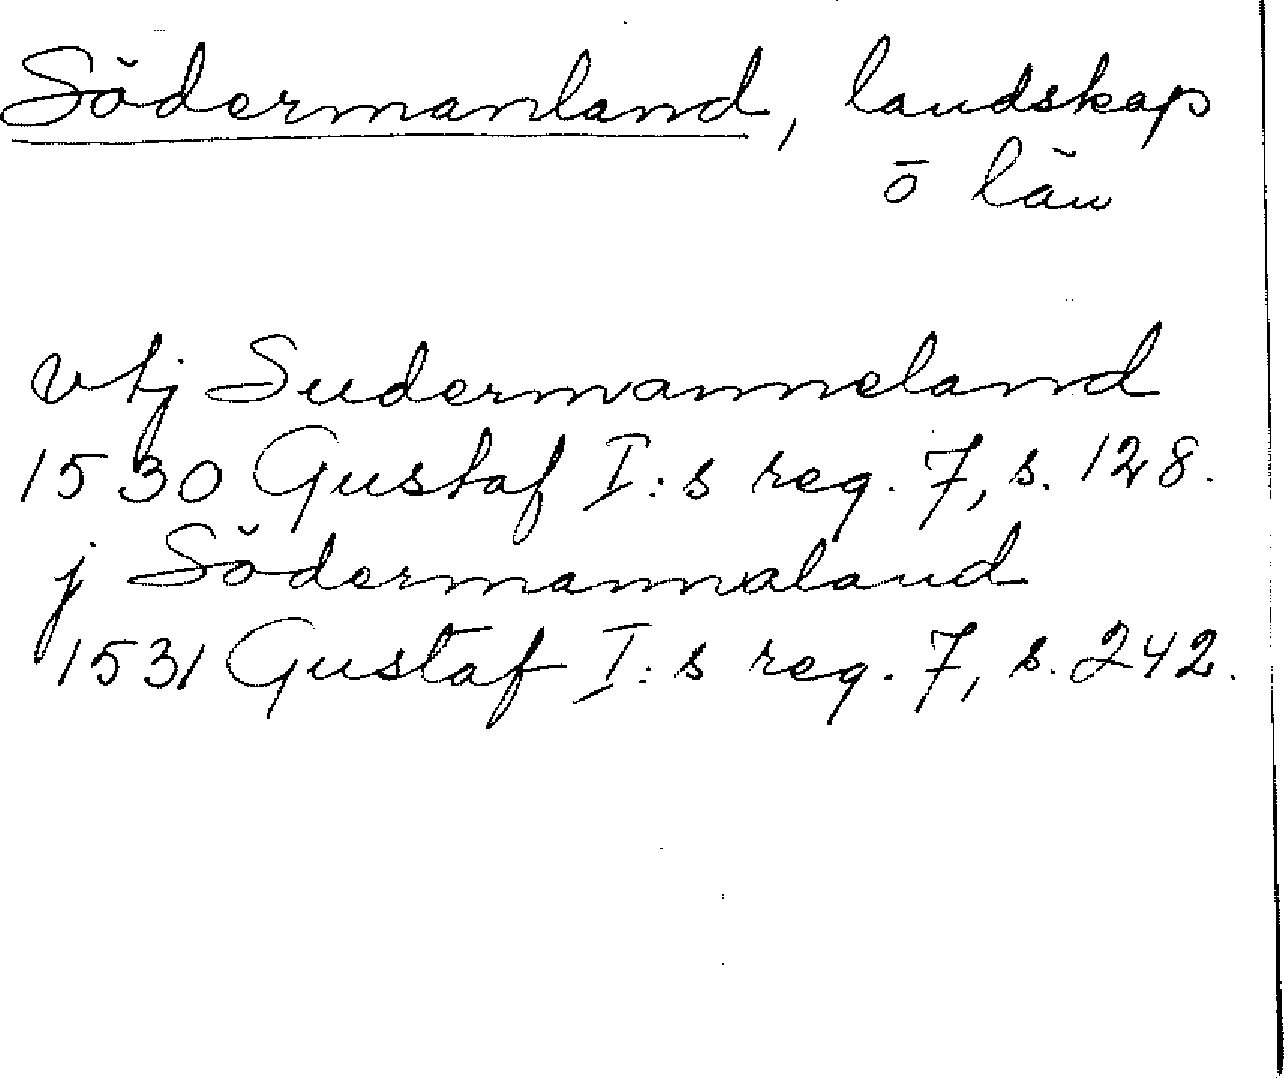 Södermanland, landskap
o län
vtj Sudermanneland
1530 Gustaf I:s reg. 7, s. 128.
j Södermannaland
1531 Gustaf I:s reg. 7, s. 242.